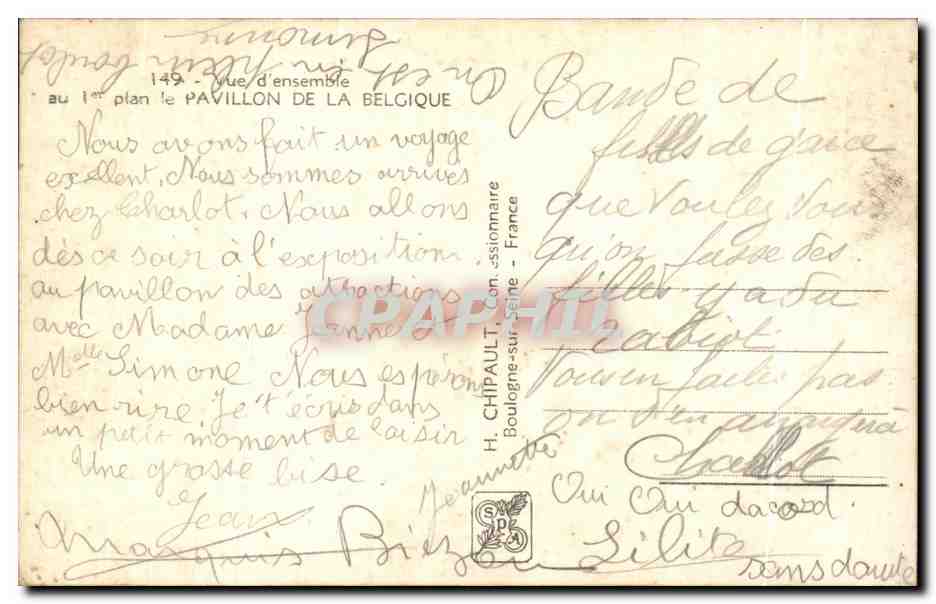 on est en plein boulot
Simone
149 - Vue d'ensemble
au 1er plan le PAVILLON DE LA BELGIQUE
Nous avons fait un voyage
excellent. Nous sommes arrives
chez Charlot. Nous allons
dès ce soir à l'exposition.
au pavillon des attractions
avec Madame Jeanne et
Melle Simone Nous espérons
bien rire. Je t'écris dans
un petit moment de loisir
Une grosse bise.
Jean
Jeannette
Marquis
H. CHIPAULT, Concessionnaire
Boulogne-sur-Seine - France
SPA
Bande de
de garce
que voulez vous
qu'on fasse des
filles y a du
rabiot
Vous en faites pas
on s'en
Charlot
Oui Oui dacord.
Lilite
sans doute
CPAPHIL